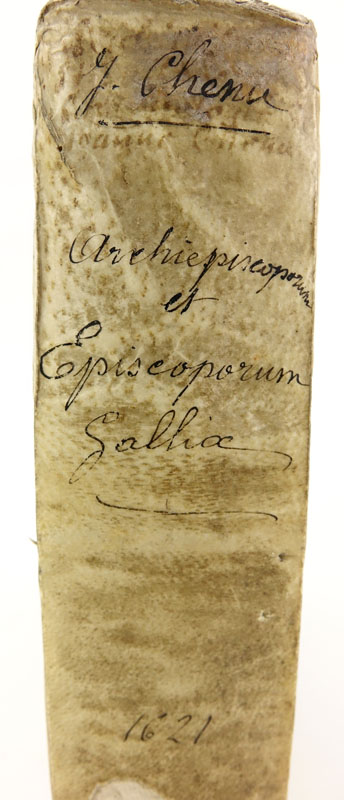 J. Chenu
Archiepiscoporum
et
Episcoporum
Galliæ
1621